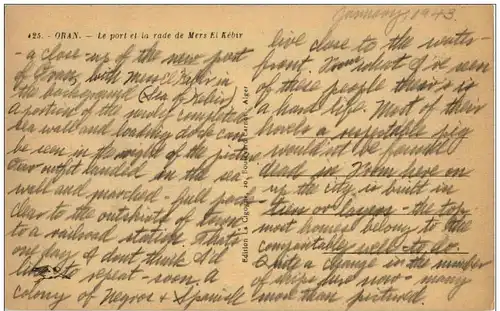 January 1943.
425. - ORAN. - Le port et la rade de Mers El Kébir
- a close-up of the new port
of Oran, with Mers El Kebir in
the background (Sea of Kebir)
a portion of the newly completed
sea wall and loading dock can
be seen in the right of the picture
Our outfit landed on the sea
wall and marched - full pack -
clear to the outskirts of town
to a railroad station. That's
one day I don't think I'll
like to repeat - soon, a
colony of Negros & Spanish
Edition La Cigogne, 20, Boulevard Carnot, Alger
live close to the water-
front. From what I've seen
of these people there's is
a hard life. Most of their
hovels a respectable pig
wouldn't be found
dead in. From here on
up the city is built in
tiers or layers - the top
most homes belong to the
comfortable well-to-do.
Quite a change in the number
of ships here now - many
more than pictured.